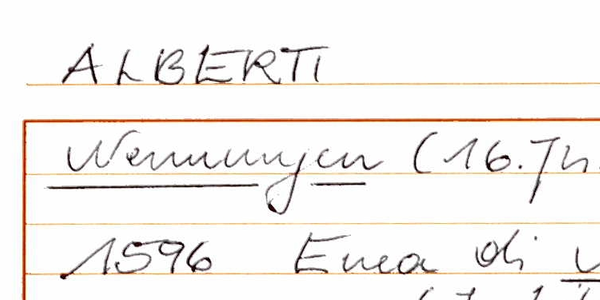 ALBERTI
Nennungen (16. Jh.
1596 Enea di